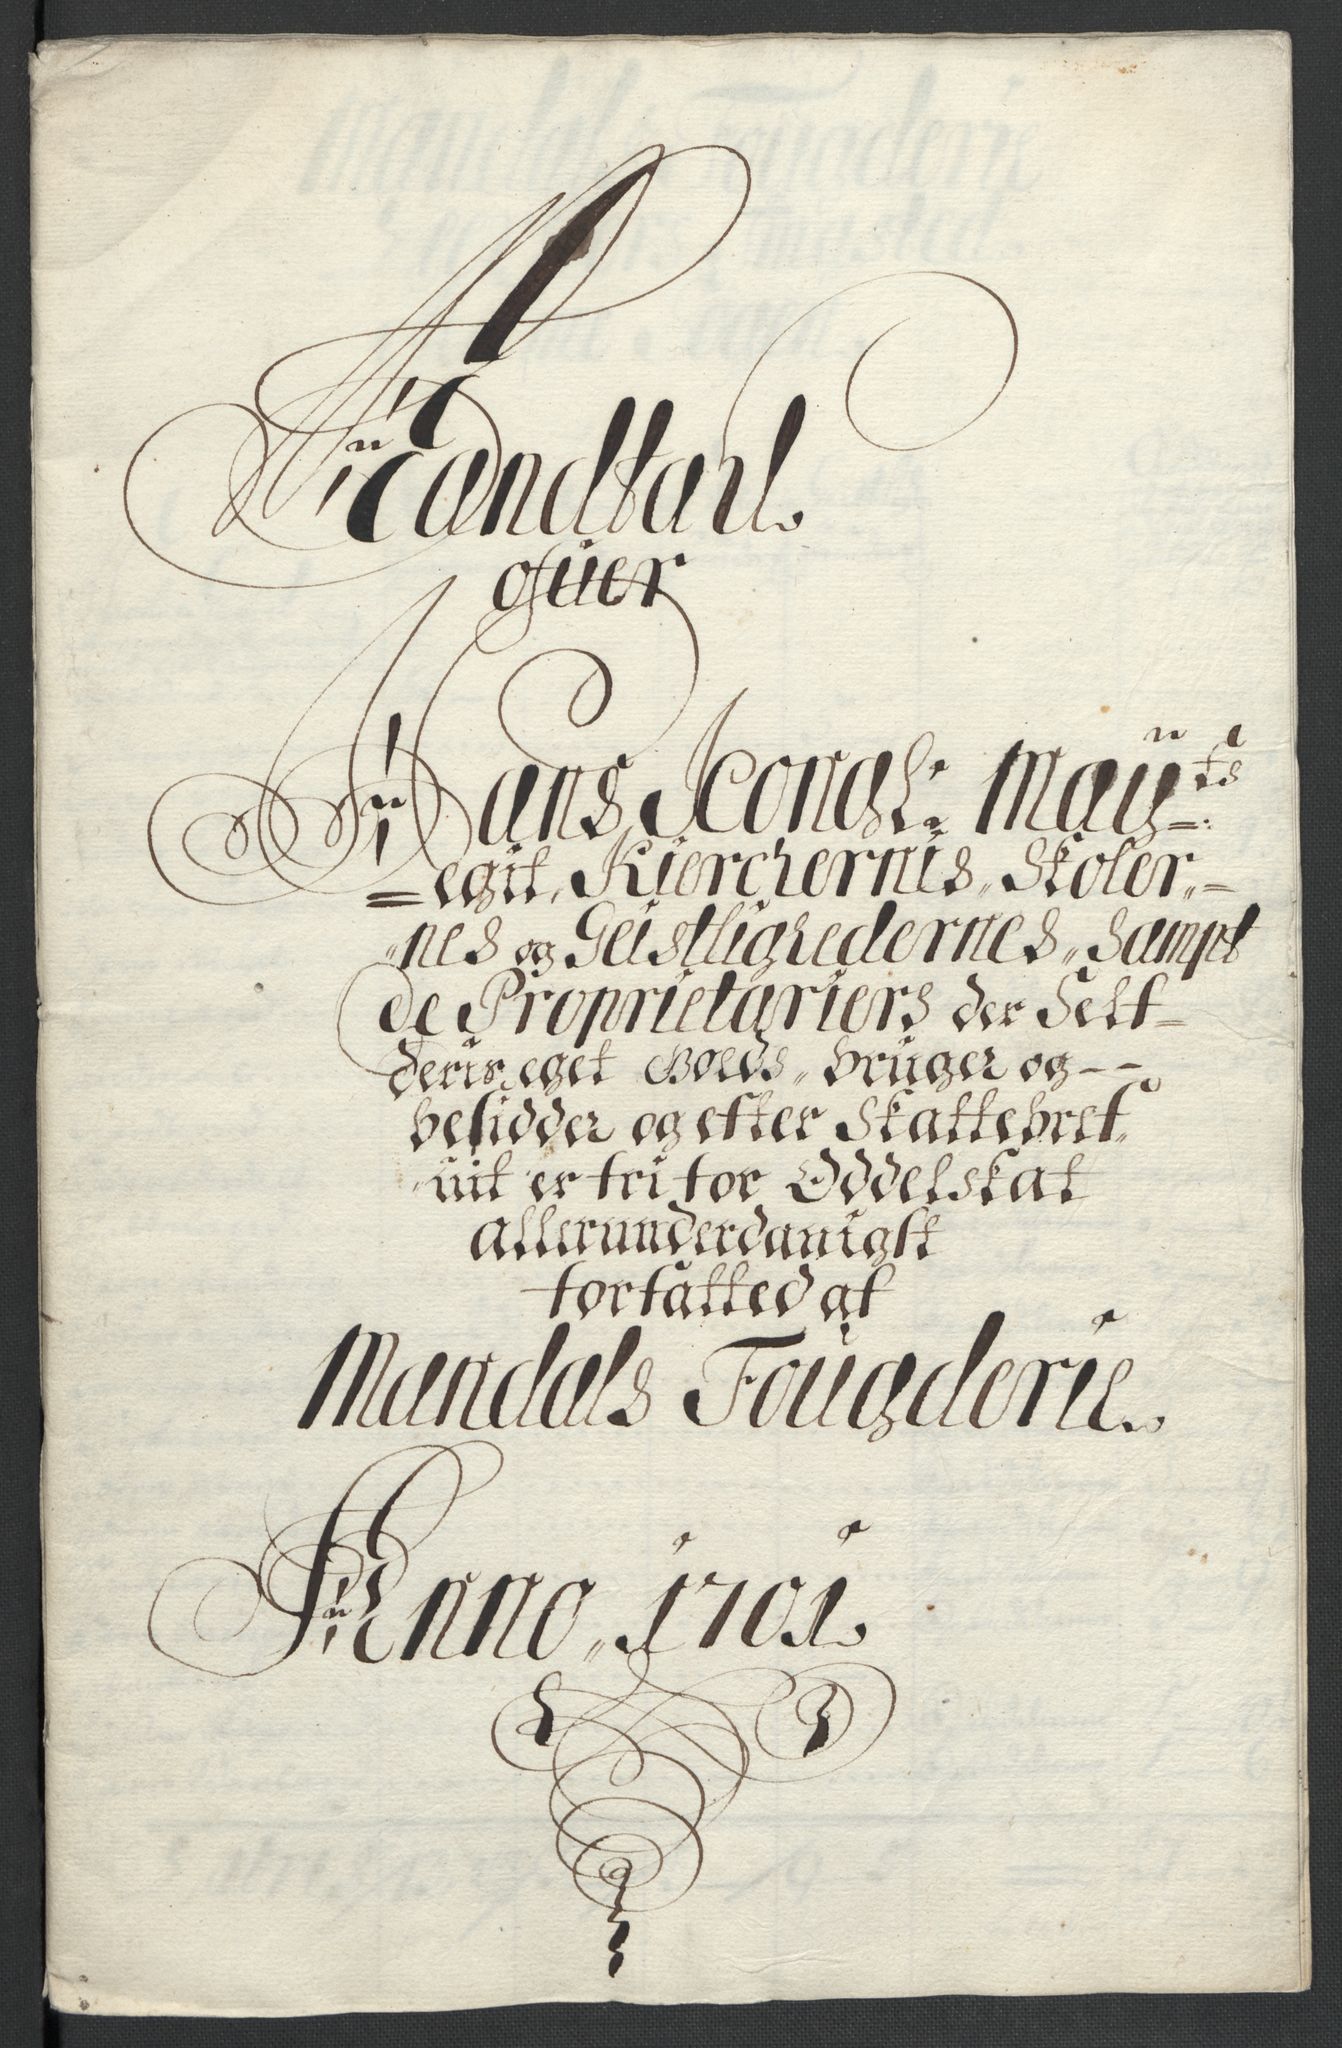 Mandtahl.
ofuer
Hans Kongl: May:ts
egit, Kierchernis, Skoler=
nes og Geistlighedernes, sampt
de Proprietariers der Self
deris eget Goeds, bruger og
besidder og efter Skattebref=
uit er fri for Oddelskat
allerunderdanigst
forfatted af
Mandals Fougderie.
Anno, 1701.